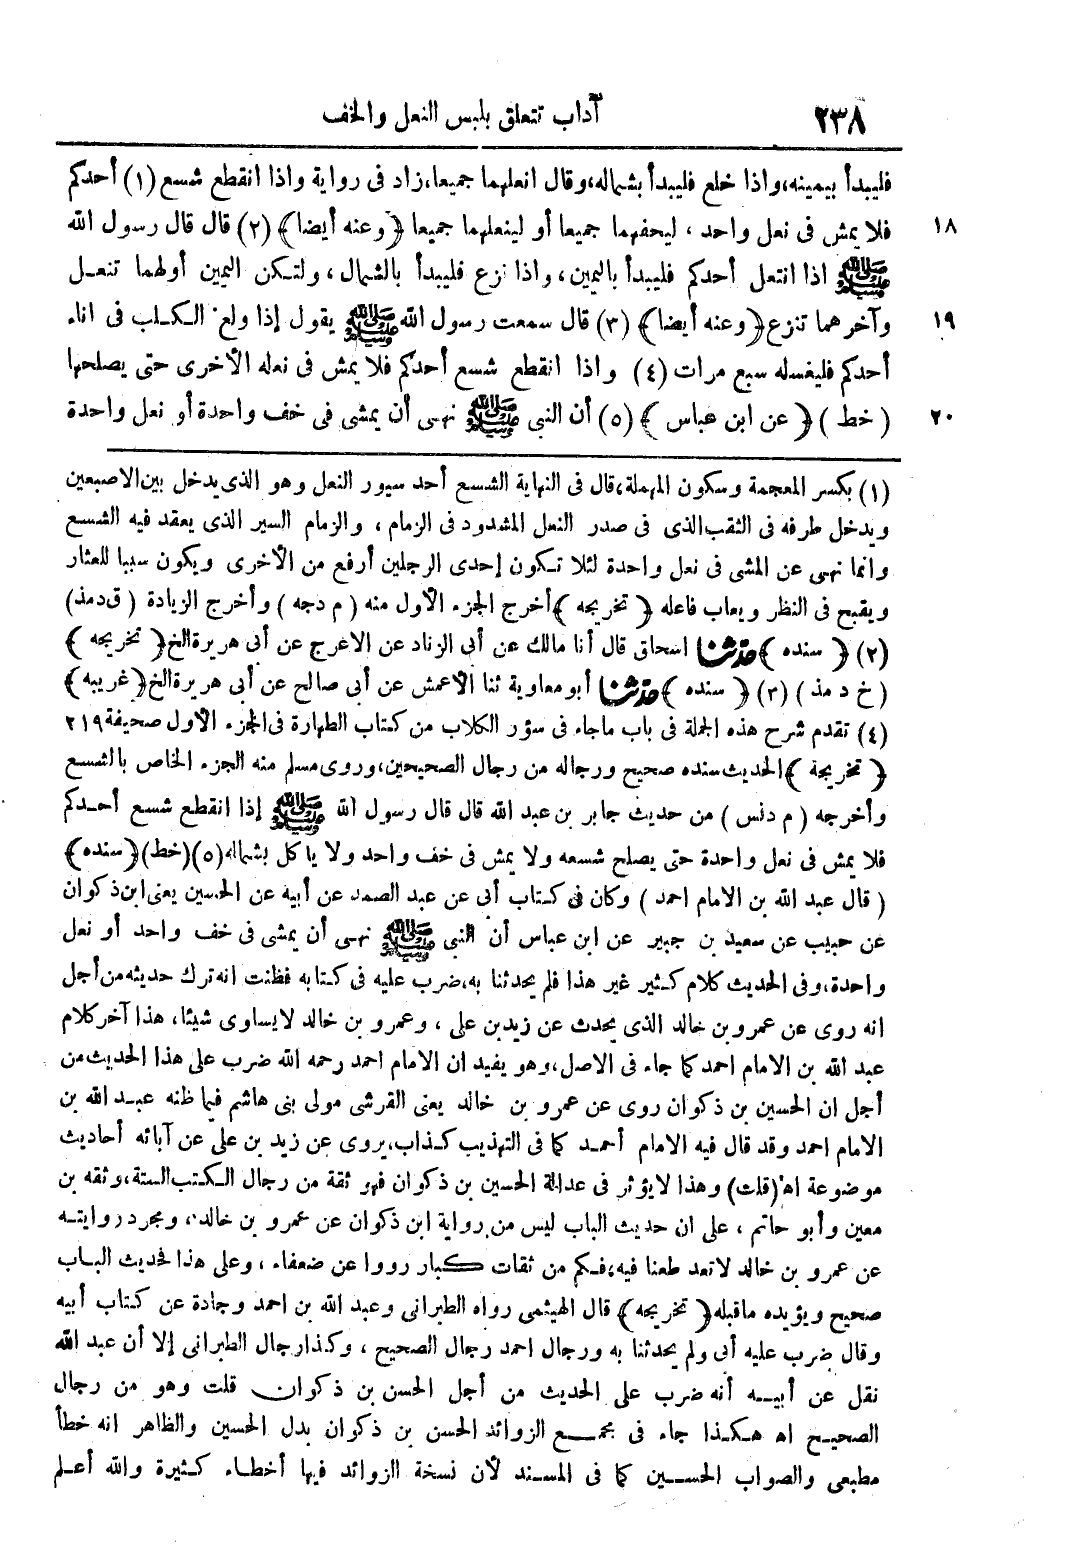 ٢٣٨ آداب تتعلق بلبس النعل والخف
فليبدأ بيمينه،واذا خلع فليبدأ بشماله،وقال انعلهما جميعا،زاد فى رواية واذا انقطع شسع (١) أحدكم
١٨ فلا يمش فى نعل واحد ، ليحفهما جميعا أو لينعلهما جميعا ﴿وعنه أيضا﴾ (٢) قال قال رسول الله
ﷺ اذا انتعل أحدكم فليبدأ باليمين ، واذا نزع فليبدأ بالشمال ، ولتكن اليمين أولهما تنعل
١٩ وآخرهما تنزع ﴿وعنه أيضا﴾ (٣) قال سمعت رسول الله ﷺ يقول إذا ولغ الكلب فى اناء
أحدكم فليغسله سبع مرات (٤) واذا انقطع شسع أحدكم فلا يمش فى نعله الأخرى حتى يصلحها
٢٠ ( خط ) ﴿ عن ابن عباس ﴾ (٥) أن النبى ﷺ نهى أن يمشى فى خف واحدة أو نعل واحدة
(١) بكسر المعجمة وسكون المهملة،قال فى النهاية الشسع أحد سيور النعل وهو الذى يدخل بين الاصبعين
ويدخل طرفه فى الثقب الذى فى صدر النعل المشدود فى الزمام ، والزمام السير الذى يعقد فيه الشسع
وانما نهى عن المشى فى نعل واحدة لئلا تكون إحدى الرجلين أرفع من الأخرى ويكون سببا للعثار
ويقبح فى النظر ويعاب فاعله ﴿ تخريجه ﴾ أخرج الجزء الأول منه ( م دجه ) وأخرج الزيادة ( ق دمذ)
(٢) ﴿ سنده ﴾ حدثنا اسحاق قال أنا مالك عن أبى الزناد عن الاعرج عن أبى هريرة الخ ﴿ تخريجه ﴾
( خ د مذ ) (٣) ﴿ سنده ﴾ حدثنا أبو معاوية ثنا الأعمش عن أبى صالح عن أبى هريرة الخ ﴿غريبه﴾
(٤) تقدم شرح هذه الجملة فى باب ماجاء فى سؤر الكلاب من كتاب الطهارة فى الجزء الاول صحيفة ٢١٩
﴿ تخريجة ﴾ الحديث سنده صحيح ورجاله من رجال الصحيحين،وروى مسلم منه الجزء الخاص بالشسع
وأخرجه ( م دنس ) من حديث جابر بن عبد الله قال قال رسول الله ﷺ إذا انقطع شسع أحدكم
فلا يمش فى نعل واحدة حتى يصلح شسعه ولا يمش فى خف واحد ولا يأكل بشماله (٥)(خط)﴿سنده﴾
( قال عبد الله بن الامام احمد ) وكان فى كتاب أبى عن عبد الصمد عن أبيه عن الحسين يعنى ابن ذكوان
عن حبيب عن سعيد بن جبير عن ابن عباس أن النبى ﷺ نهى أن يمشى فى خف واحد أو نعل
واحدة،وفى الحديث كلام كثير غير هذا فلم يحدثنا به،ضرب عليه فى كتابه فظننت انه ترك حديثه من أجل
انه روى عن عمرو بن خالد الذى يحدث عن زيد بن على ، وعمرو بن خالد لا يساوى شيئا، هذا آخر كلام
عبد الله بن الامام احمد كما جاء فى الاصل،وهو يفيد ان الامام احمد رحمه الله ضرب على هذا الحديث من
أجل ان الحسين بن ذكوان روى عن عمرو بن خالد يعنى القرشى مولى بنى هاشم فيما ظنه عبد الله بن
الامام احمد وقد قال فيه الامام أحمد كما فى التهذيب كذاب،يروى عن زيد بن على عن آبائه أحاديث
موضوعة اه (قلت) وهذا لا يؤثر فى عدالة الحسين بن ذكوان فهو ثقة من رجال الكتب الستة،وثقه بن
معين وأبو حاتم ، على ان حديث الباب ليس من رواية ابن ذكوان عن عمرو بن خالد، ومجرد روايته
عن عمرو بن خالد لا تعد طعنا فيه،فكم من ثقات كبار رووا عن ضعفاء ، وعلى هذا فحديث الباب
صحيح ويؤيده ماقبله ﴿ تخريجه ﴾ قال الهيثمى رواه الطبرانى وعبد الله بن احمد وجادة عن كتاب أبيه
وقال ضرب عليه أبى ولم يحدثنا به ورجال احمد رجال الصحيح ، وكذا رجال الطبرانى إلا أن عبد الله
نقل عن أبيه أنه ضرب على الحديث من أجل الحسن بن ذكوان قلت وهو من رجال
الصحيح اه هكذا جاء فى مجمع الزوائد الحسن بن ذكوان بدل الحسين والظاهر انه خطأ
مطبعى والصواب الحسين كما فى المسند لأن نسخة الزوائد فيها أخطاء كثيرة والله أعلم